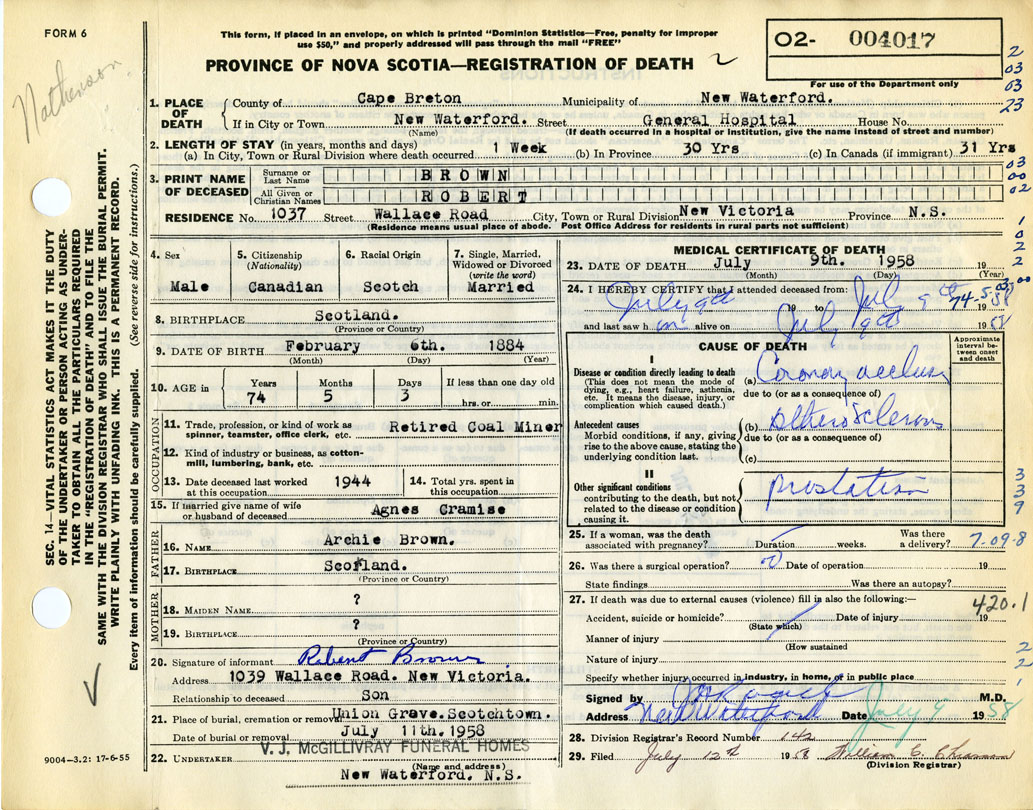 FORM 6
This form, if placed in an envelope, on which is printed "Dominion Statistics—Free, penalty for improper
use $50," and properly addressed will pass through the mail "FREE"
PROVINCE OF NOVA SCOTIA—REGISTRATION OF DEATH 2
O2- 004017
For use of the Department only
2
03
03
23
Mathenson
SEC. 14—VITAL STATISTICS ACT MAKES IT THE DUTY
OF THE UNDERTAKER OR PERSON ACTING AS UNDER-
TAKER TO OBTAIN ALL THE PARTICULARS REQUIRED
IN THE "REGISTRATION OF DEATH" AND TO FILE THE
SAME WITH THE DIVISION REGISTRAR WHO SHALL ISSUE THE BURIAL PERMIT.
WRITE PLAINLY WITH UNFADING INK. THIS IS A PERMANENT RECORD.
Every item of information should be carefully supplied. (See reverse side for instructions.)
1. PLACE OF DEATH
County of Cape Breton Municipality of New Waterford.
If in City or Town New Waterford. Street General Hospital House No.
(Name) (If death occurred in a hospital or institution, give the name instead of street and number)
2. LENGTH OF STAY (in years, months and days)
(a) In City, Town or Rural Division where death occurred 1 Week (b) In Province 30 Yrs (c) In Canada (if immigrant) 31 Yrs
3. PRINT NAME OF DECEASED
Surname or Last Name BROWN
All Given or Christian Names ROBERT
03
00
02
RESIDENCE No. 1037 Street Wallace Road City, Town or Rural Division New Victoria Province N.S.
(Residence means usual place of abode. Post Office Address for residents in rural parts not sufficient)
1
0
2
2
4. Sex
Male
5. Citizenship
(Nationality)
Canadian
6. Racial Origin
Scotch
7. Single, Married,
Widowed or Divorced
(write the word)
Married
8. BIRTHPLACE Scotland.
(Province or Country)
9. DATE OF BIRTH February 6th. 1884
(Month) (Day) (Year)
10. AGE in
Years 74
Months 5
Days 3
If less than one day old
hrs. or min.
OCCUPATION
11. Trade, profession, or kind of work as
spinner, teamster, office clerk, etc. Retired Coal Miner
12. Kind of industry or business, as cotton-
mill, lumbering, bank, etc.
13. Date deceased last worked
at this occupation 1944
14. Total yrs. spent in
this occupation
15. If married give name of wife
or husband of deceased Agnes Cramise
FATHER
16. NAME Archie Brown.
17. BIRTHPLACE Scotland.
(Province or Country)
MOTHER
18. MAIDEN NAME ?
19. BIRTHPLACE ?
(Province or Country)
20. Signature of informant Robert Brown
Address 1039 Wallace Road. New Victoria.
Relationship to deceased Son
21. Place of burial, cremation or removal Union Grave.Scotchtown.
Date of burial or removal July 11th.1958
22. UNDERTAKER V. J. McGILLIVRAY FUNERAL HOMES
(Name and address)
New Waterford. N.S.
9004—3.2: 17-6-55
MEDICAL CERTIFICATE OF DEATH
23. DATE OF DEATH July 9th. 1958 19
(Month) (Day) (Year)
24. I HEREBY CERTIFY that I attended deceased from:
July 9th 19 to July 9th 1958
74-5-03
00
and last saw him alive on July 9th 1958
CAUSE OF DEATH
Approximate
interval be-
tween onset
and death
I
Disease or condition directly leading to death
(This does not mean the mode of
dying, e.g., heart failure, asthenia,
etc. It means the disease, injury, or
complication which caused death.)
(a) Coronary occlusion
due to (or as a consequence of)
Antecedent causes
Morbid conditions, if any, giving
rise to the above cause, stating the
underlying condition last.
(b) Atherosclerosis
due to (or as a consequence of)
(c)
II
Other significant conditions
contributing to the death, but not
related to the disease or condition
causing it.
prostatism
3
3
9
25. If a woman, was the death
associated with pregnancy? Duration weeks. Was there
a delivery?
7-09-8
26. Was there a surgical operation? Date of operation 19
State findings Was there an autopsy?
27. If death was due to external causes (violence) fill in also the following:—
420.1
Accident, suicide or homicide? Date of injury 19
(State which)
Manner of injury
(How sustained
Nature of injury
Specify whether injury occurred in industry, in home, or in public place
2
2
1
Signed by M.D.
Address New Waterford Date July 9 1958
28. Division Registrar's Record Number 142
29. Filed July 12th 1958 William C.
(Division Registrar)